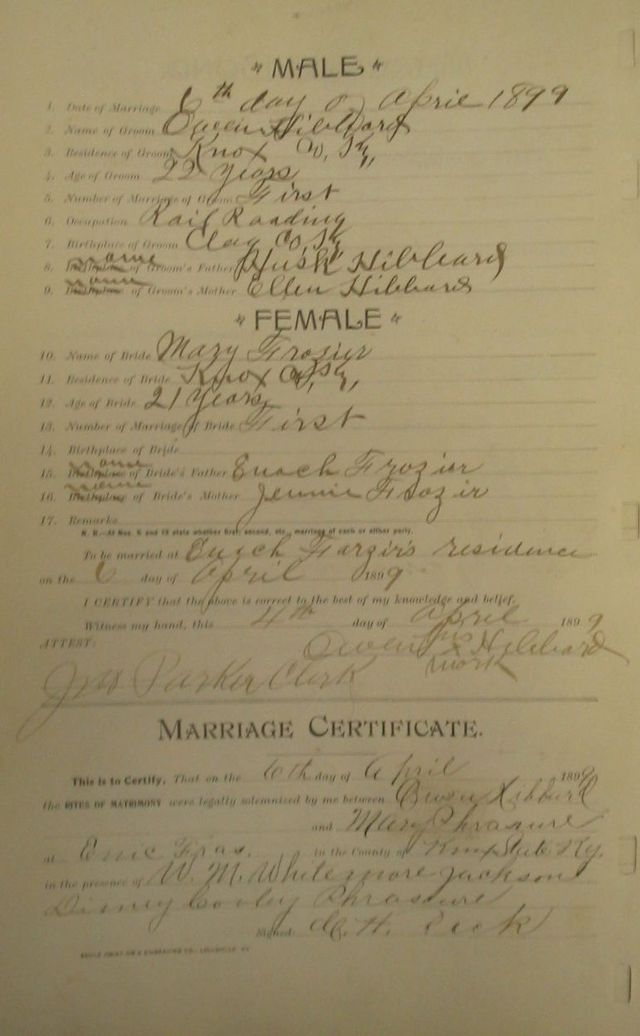 " MALE "
1. Date of Marriage 6th day of April 1899
2. Name of Groom Owen Hibbard
3. Residence of Groom Knox Co, Ky,
4. Age of Groom 22 years
5. Number of Marriage of Groom First
6. Occupation Rail Roading
7. Birthplace of Groom Clay Co, Ky
8. Birthplace name of Groom's Father Hush Hibbard
9. Birthplace name of Groom's Mother Ellen Hibbard
" FEMALE "
10. Name of Bride Mary Frosier
11. Residence of Bride Knox Co, Ky,
12. Age of Bride 21 Years
13. Number of Marriage of Bride First
14. Birthplace of Bride
15. Birthplace name of Bride's Father Enoch Frozier
16. Birthplace name of Bride's Mother Jennie Frozier
17. Remarks
N. B.—At Nos. 5 and 13 state whether first, second, etc., marriage of each or either party.
To be married at Enoch Farzir's residence
on the 6 day of April 1899
I CERTIFY that the above is correct to the best of my knowledge and belief.
Witness my hand, this 4th day of April 1899
ATTEST: Owen his x mark Hibbard
Jno Parker Clerk
MARRIAGE CERTIFICATE.
This is to Certify, That on the 6th day of April 1899
the RITES OF MATRIMONY were legally solemnized by me between Owen Hibburd
and Mary Phrasure
at Enic Fras. in the County of Knox State Ky.
in the presence of W. M. Whitemore Jackson
Disney Cooley Phrasure
Signed